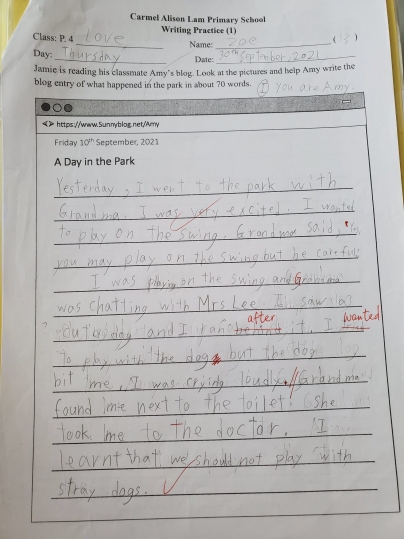 Carmel Alison Lam Primary School
Writing Practice (1)
Class: P. 4 Love Name: Zoe ( )
Day: Thursday Date: 30th September, 2021
Jamie is reading his classmate Amy's blog. Look at the pictures and help Amy write the
blog entry of what happened in the park in about 70 words. ① You are Amy
<> https://www.Sunnyblog.net/Amy
Friday 10th September, 2021
A Day in the Park
Yesterday, I went to the park with
Grandma. I was very excited. I wanted
to play on the swing. Grandma said, "
you may play on the swing but be careful
I was playing on the swing and Grandma
was chatting with Mrs Lee. I saw a
? cute dog and I ran behind after it. I wanted
to play with the dog but the dog
bit me. I was crying loudly. // Grandma
found me next to the toilet. She
took me to the doctor. I
learnt that we should not play with
stray dogs.